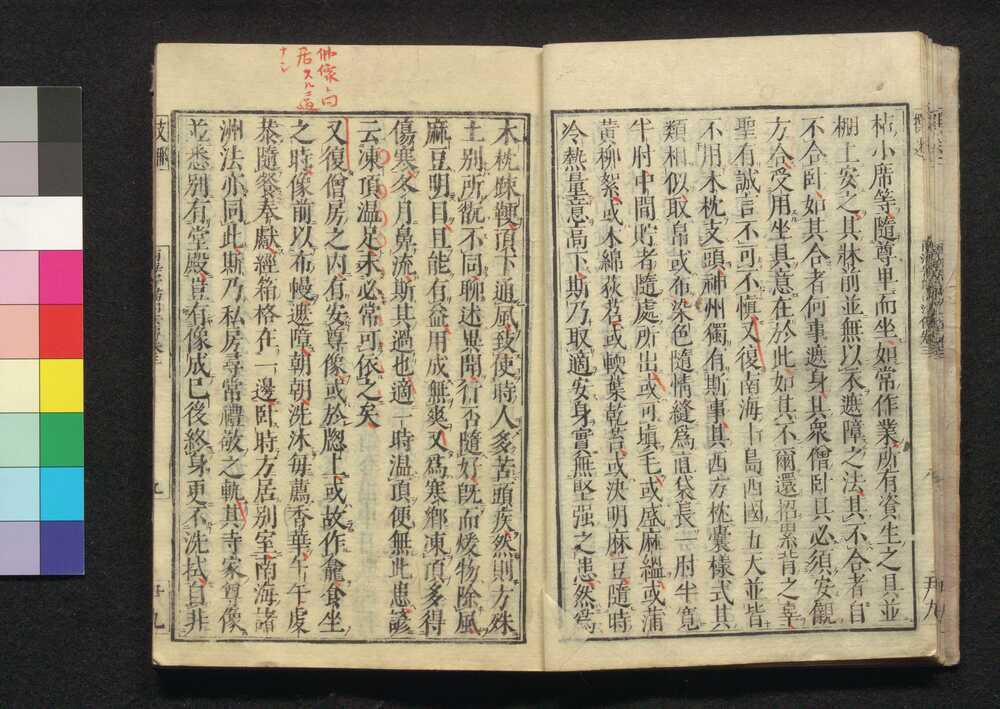 枮小席等隨尊卑而坐如常作業所有資生之具並
棚上安之其牀前並無以木遮障之法其不合者自
不合臥如其合者何事遮身其衆僧臥具必須安襯
方合受用坐具意在於此如其不爾還招累背之辜
聖有誠言不可不慎又復南海十島西國五天並皆
不用木枕支頭神州獨有斯事其西方枕囊樣式其
類相似取帛或布染色隨情縫爲直袋長一肘半寬
半肘中間貯者隨處所出或可填毛或盛麻縕或蒲
黃柳絮或木綿荻苕或軟葉乾苔或決明麻豆隨時
冷熱量意高下斯乃取適安身實無堅强之患然爲
木枕踈鞕項下通風致使時人多苦頭疾然則方殊
土別所翫不同聊述異聞行否隨好旣而煖物除風
麻豆明目且能有益用成無爽又爲寒鄉凍頂多得
傷寒冬月鼻流斯其過也適時温頂便無此患諺
云凍頂温足未必常可依之矣
又復僧房之內有安尊像或於牕上或故作龕食坐
之時像前以布幔遮障朝朝洗沐每薦香華午午虔
恭隨餐奉獻經箱格在一邊臥時方居別室南海諸
洲法亦同此斯乃私房尋常禮敬之軌其寺家尊像
並悉別有堂殿豈有像成已後終身更不洗拭自非